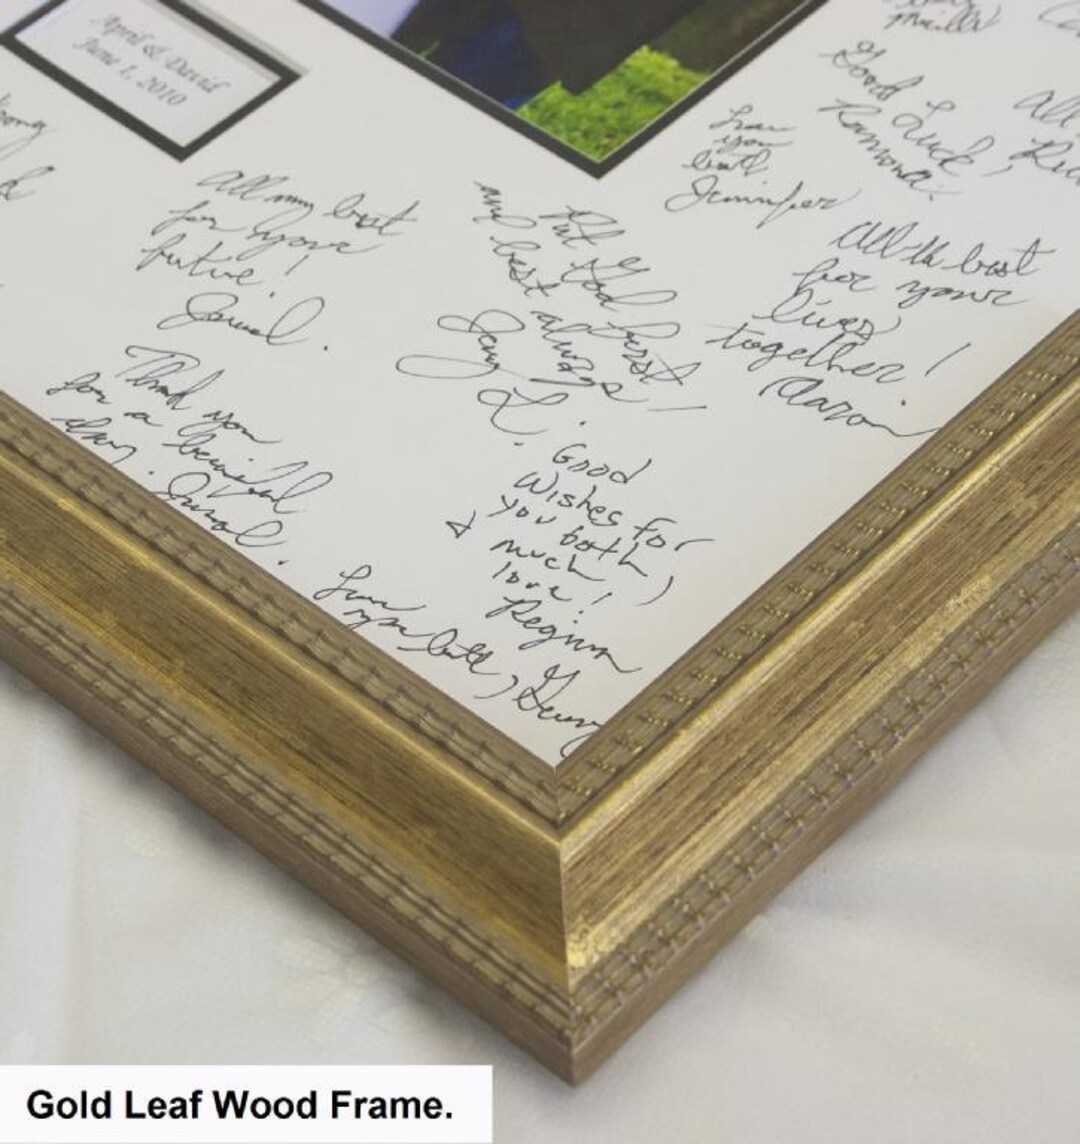 April & David
June 1, 2010
Good Luck,
Ramona.
All
Love
you
both
Jennifer
All my best
for your
future!
All the best
for your
lives
together!
Aaron
Put God first
my best always!
L.
Thank you
for a beautiful
day.
Good
Wishes for
you both,
& much
love!
Regina
Love
you both,
Gold Leaf Wood Frame.